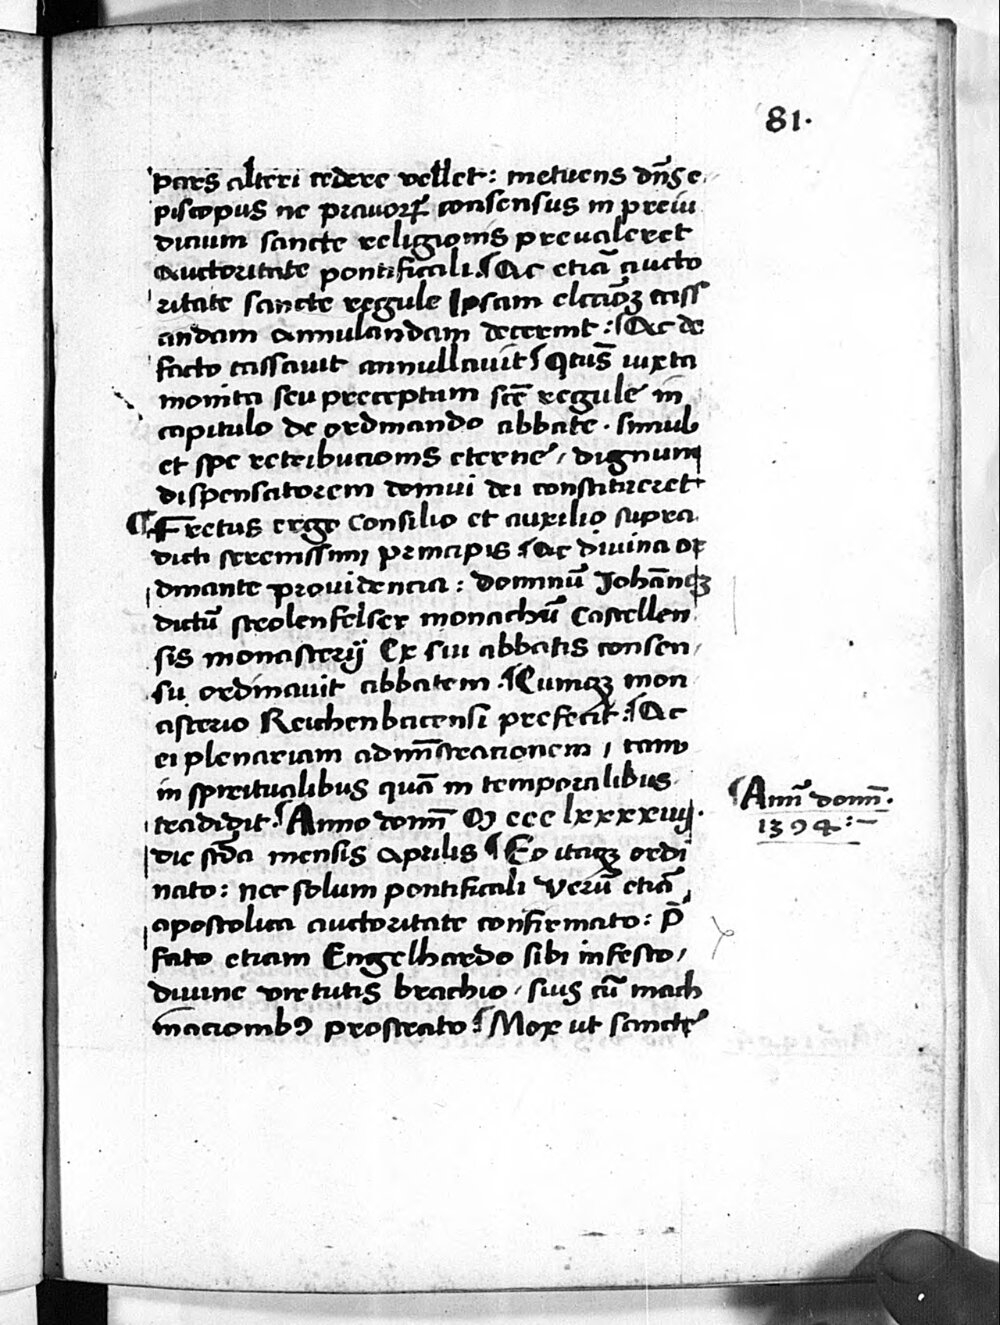 81.
pars alteri cedere vellet: metuens dn̄s e
piscopus ne pravorꝝ consensus in preiu
dicium sancte religionis prevaleret
auctoritate pontificali. Ac etiā aucto
ritate sancte regule Ipsam elccōꝫ cass
andam annulandam decernit: Ac de
facto cassavit annullavit
iuxta
monita seu preceptum scē regule in
capitulo de ordinando abbate. simul
et spe retribucionis eterne, dignum
dispensatorem domui dei constitueret
¶ Fretus ergo Consilio et auxilio supra
dicti serenissimi principis Ac divina or
dinante providencia: dominū Johānēꝫ
dictū strolenfelser monachū Castellen
sis monasterij Ex sui abbatis consen
su ordinavit abbatem. Cumqꝫ mon
asterio Reichenbacensi prefecit: Ac
ei plenariam adminīstracionem, tam
in spiritualibus quā in temporalibus
tradidit. Anno domī M ccc lxxxxiiij.
die scd̄a mensis Aprilis Eo itaqꝫ ordi
nato: nec solum pontificali Verū etiā
apostolica auctoritate confirmato: p̄
fato etiam Engelhardo sibi infesto,
divine virtutis brachio, suis cū mach
inacionibꝰ prostrato. Mox ut sancte
Ann̄ domī.
1394:~